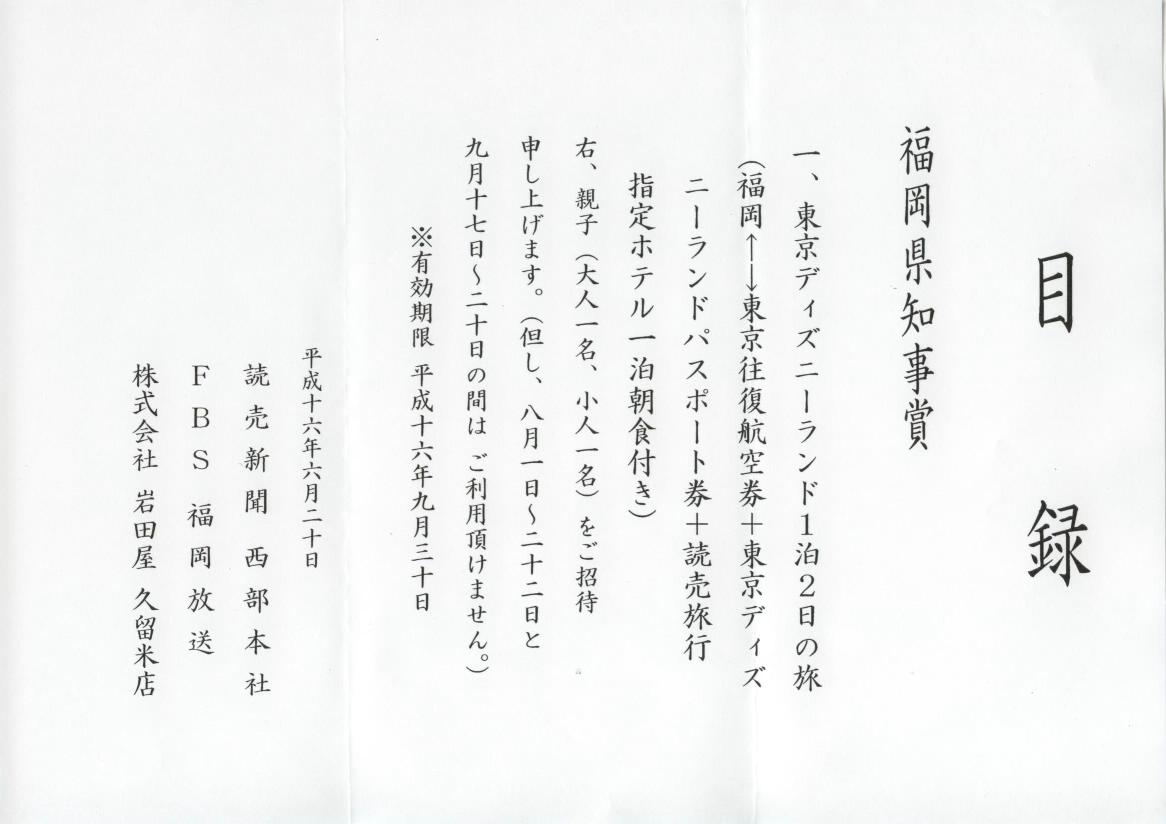 目録
福岡県知事賞
一、東京ディズニーランド1泊2日の旅
（福岡←→東京往復航空券＋東京ディズ
ニーランドパスポート券＋読売旅行
指定ホテル一泊朝食付き）
右、親子（大人一名、小人一名）をご招待
申し上げます。（但し、八月一日～二十二日と
九月十七日～二十日の間は ご利用頂けません。）
※有効期限 平成十六年九月三十日
平成十六年六月二十日
読売新聞 西部本社
ＦＢＳ福岡放送
株式会社 岩田屋 久留米店